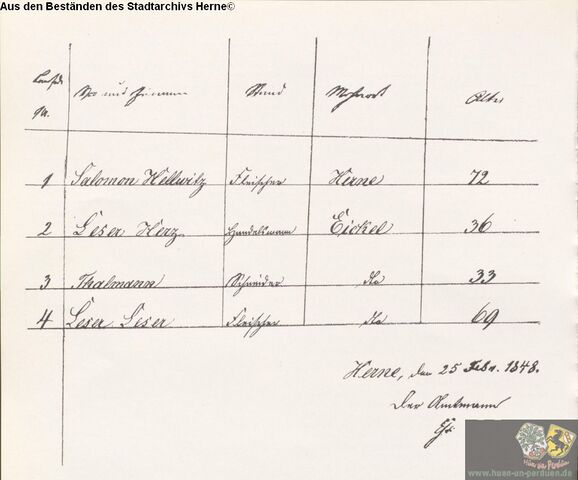 Aus den Beständen des Stadtarchivs Herne©
Laufende Vor und Zuname Stand Wohnort Alter
No.
1 Salomon Hellwitz Fleischer Herne 72
2 Leser Herz Handelsmann Eickel 36
3 Thalmann Schneider dto 33
4 Leser Leser Fleischer dto 69
Herne, den 25 Febr. 1848.
Der Amtmann
www.huen-un-perduen.de